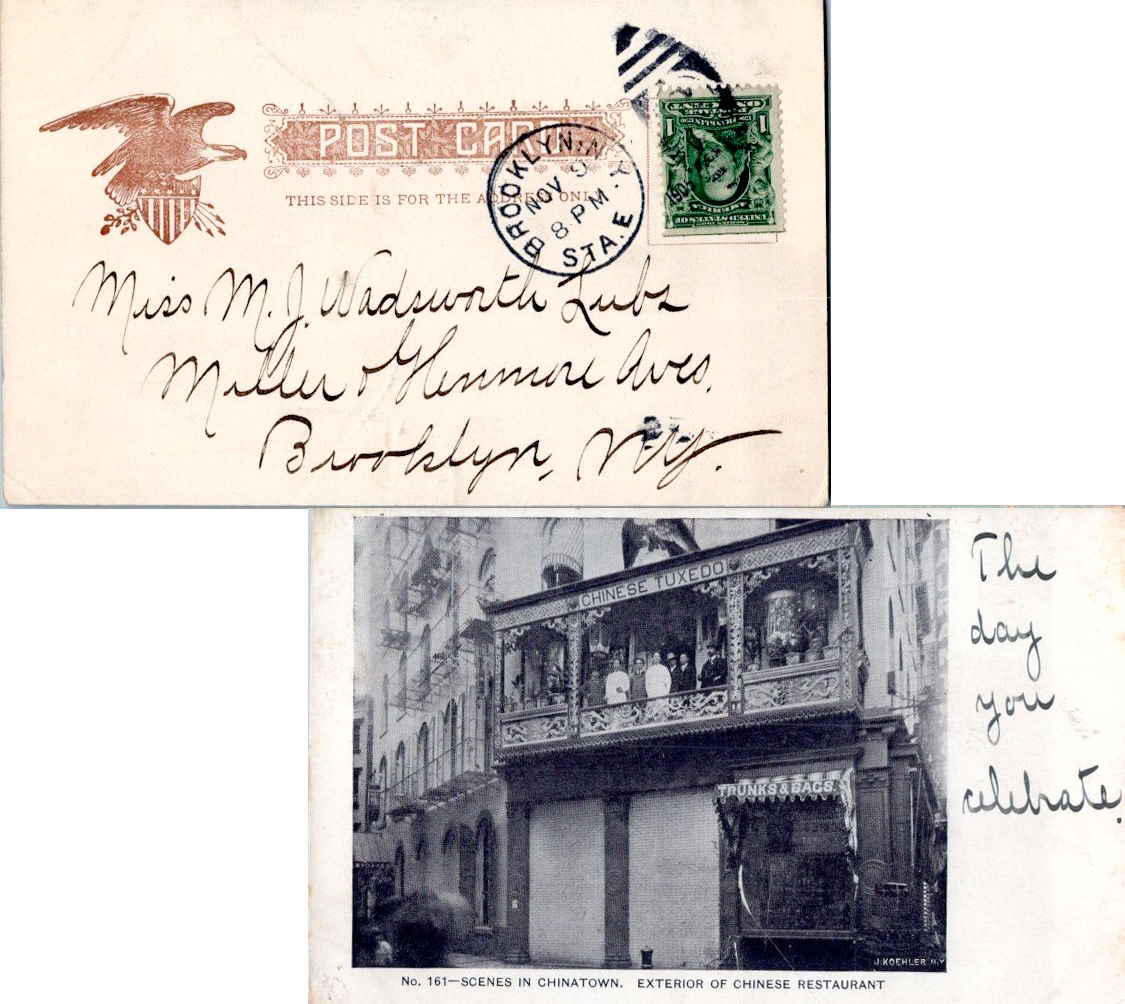 POST CARD
THIS SIDE IS FOR THE ADDRESS ONLY
BROOKLYN, N.Y.
NOV 9
8 PM
STA. E
190
1 ONE CENT 1
FRANKLIN
Miss M. J. Wadsworth Lubs
Miller & Glenmore Aves.
Brooklyn, N.Y.
CHINESE TUXEDO
TRUNKS & BAGS
J. KOEHLER N.Y.
No. 161—SCENES IN CHINATOWN. EXTERIOR OF CHINESE RESTAURANT
The
day
you
celebrate.